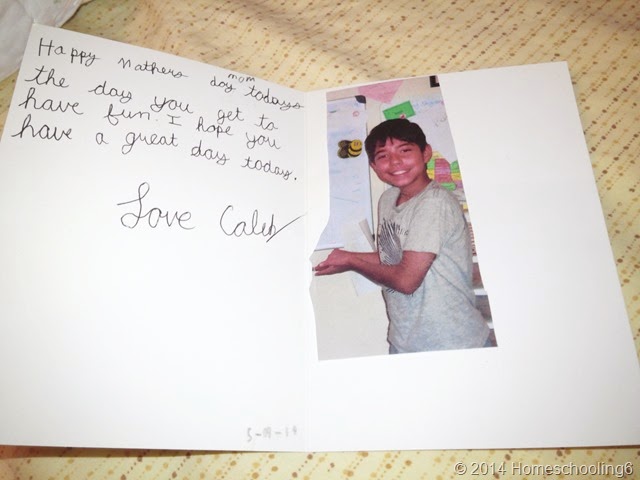 Happy Mathers day mom todays
the day you get to
have fun. I hope you
have a great day today.
Love Caleb
© 2014 Homeschooling6